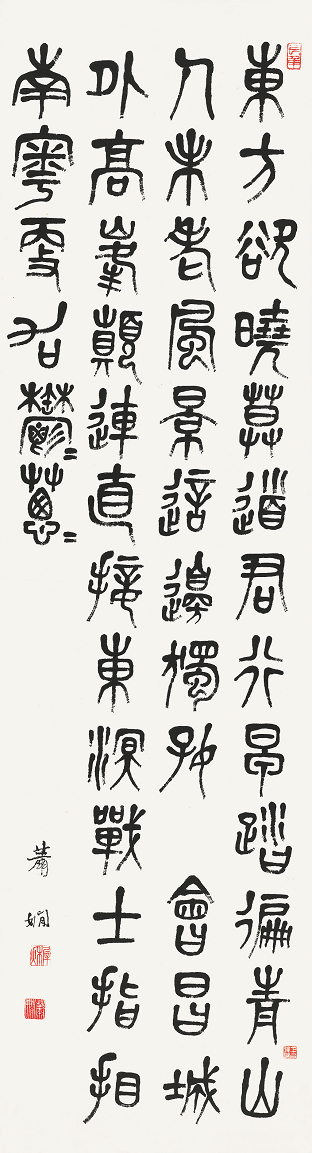 東方欲曉莫道君行早踏徧青山
人未老風景這邊獨好 會昌城
外高峯顛連直接東溟戰士指看
南粵更加鬱〻蔥〻
蕭嫻